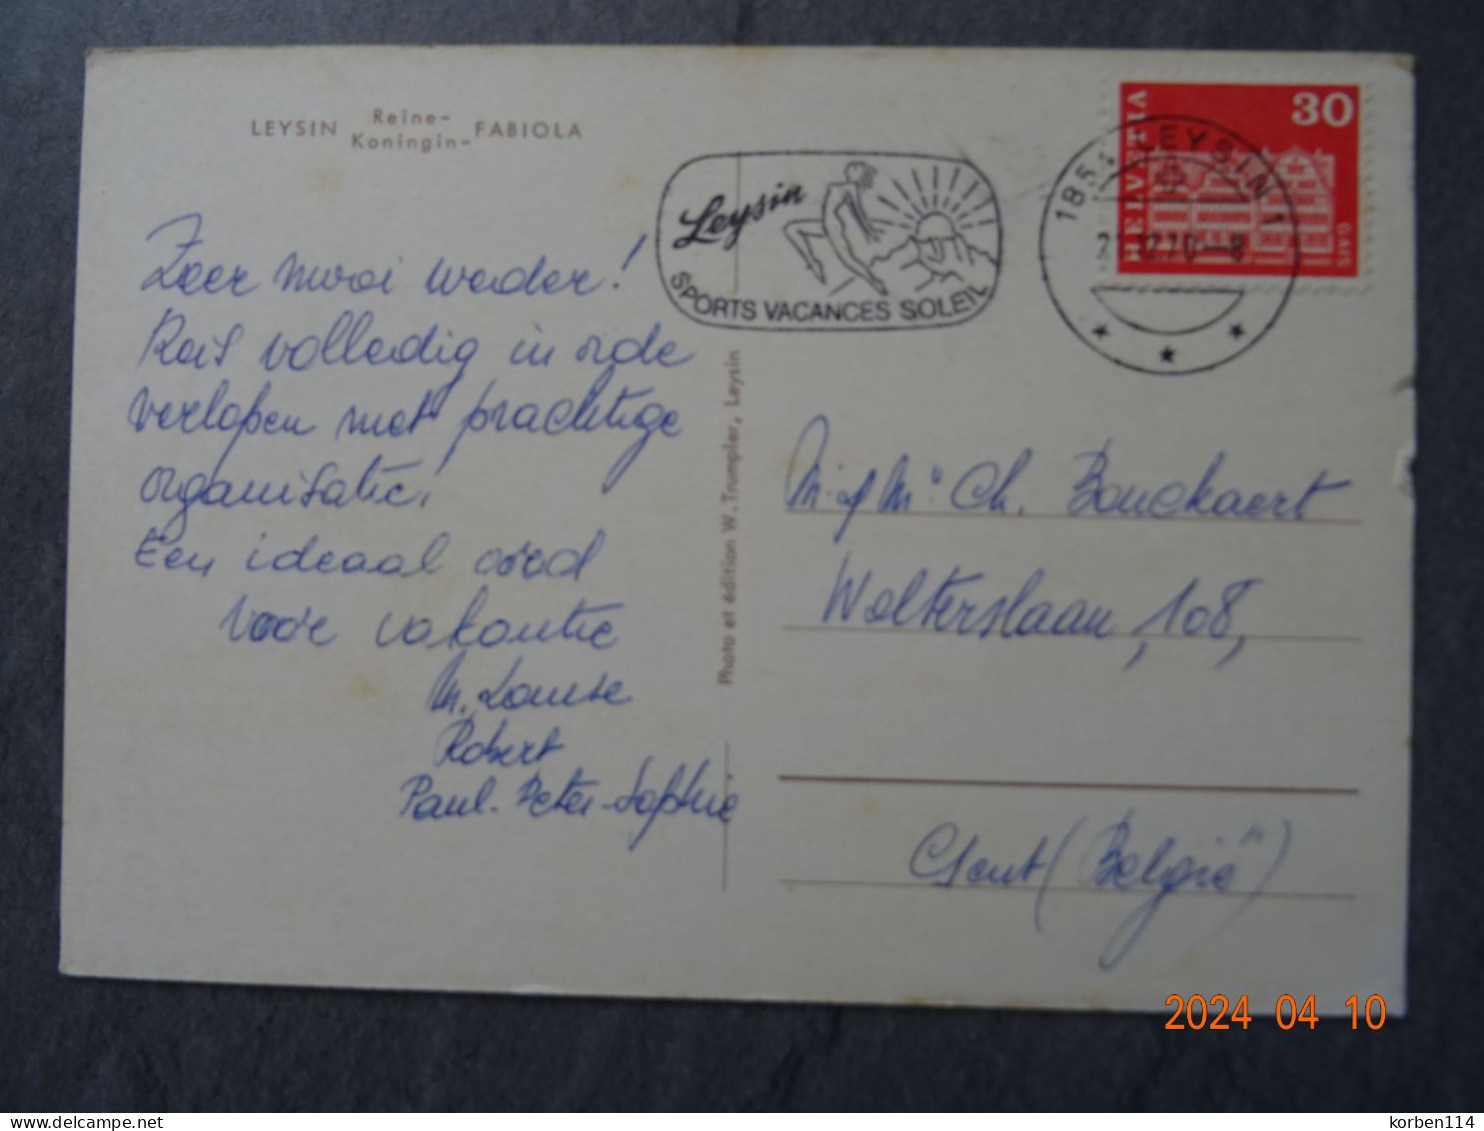 LEYSIN Reine- Koningin- FABIOLA
Zeer mooi weder!
Reis volledig in orde
verlopen met prachtige
organisatie!
Een ideaal oord
voor vakantie
M. Louise
Robert
Paul. Peter-Sophie
Photo et édition W. Trumpler, Leysin
Leysin
SPORTS VACANCES SOLEIL
1854 LEYSIN 1
HELVETIA
30
GAIS
Ch. Bouckaert
Wolterslaan, 108,
Gent (België)
2024 04 10
delcampe.net
korben114